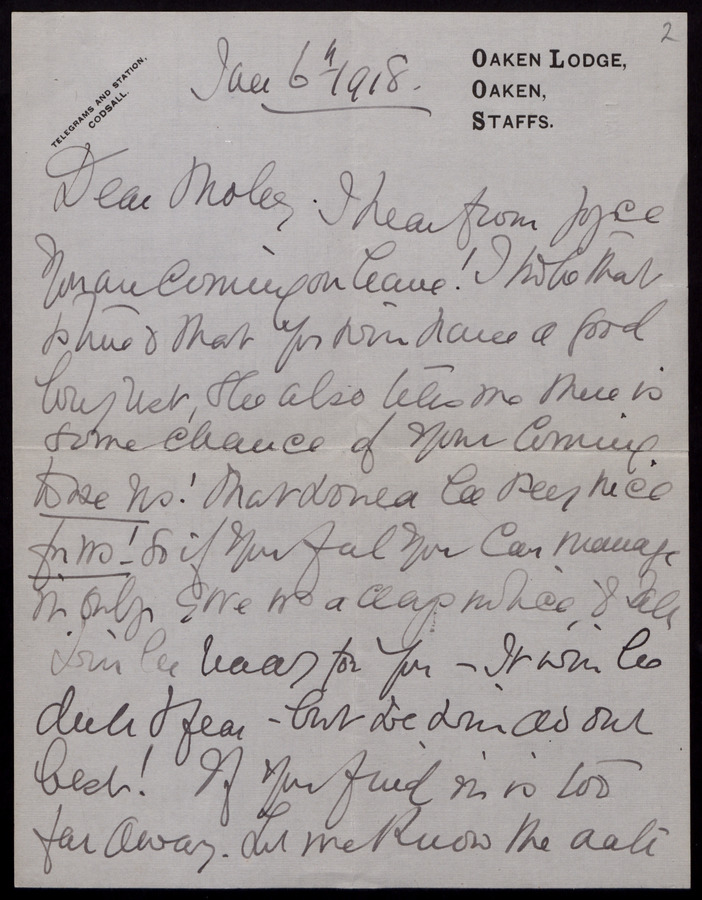 2
OAKEN LODGE,
OAKEN,
STAFFS.
TELEGRAMS AND STATION,
CODSALL.
Jan 6th 1918.
Dear Moley. I hear from Joyce
You are Coming on leave! I hope that
is true & that you will have a good
long rest, She also tells me there is
some chance of your Coming
to see us! That would be very nice
for us! So if you feel you Can manage
it only give us a days notice, & all
will be ready for you – It will be
dull I fear – but we will do our
best! If you find it is too
far away. Let me know the date